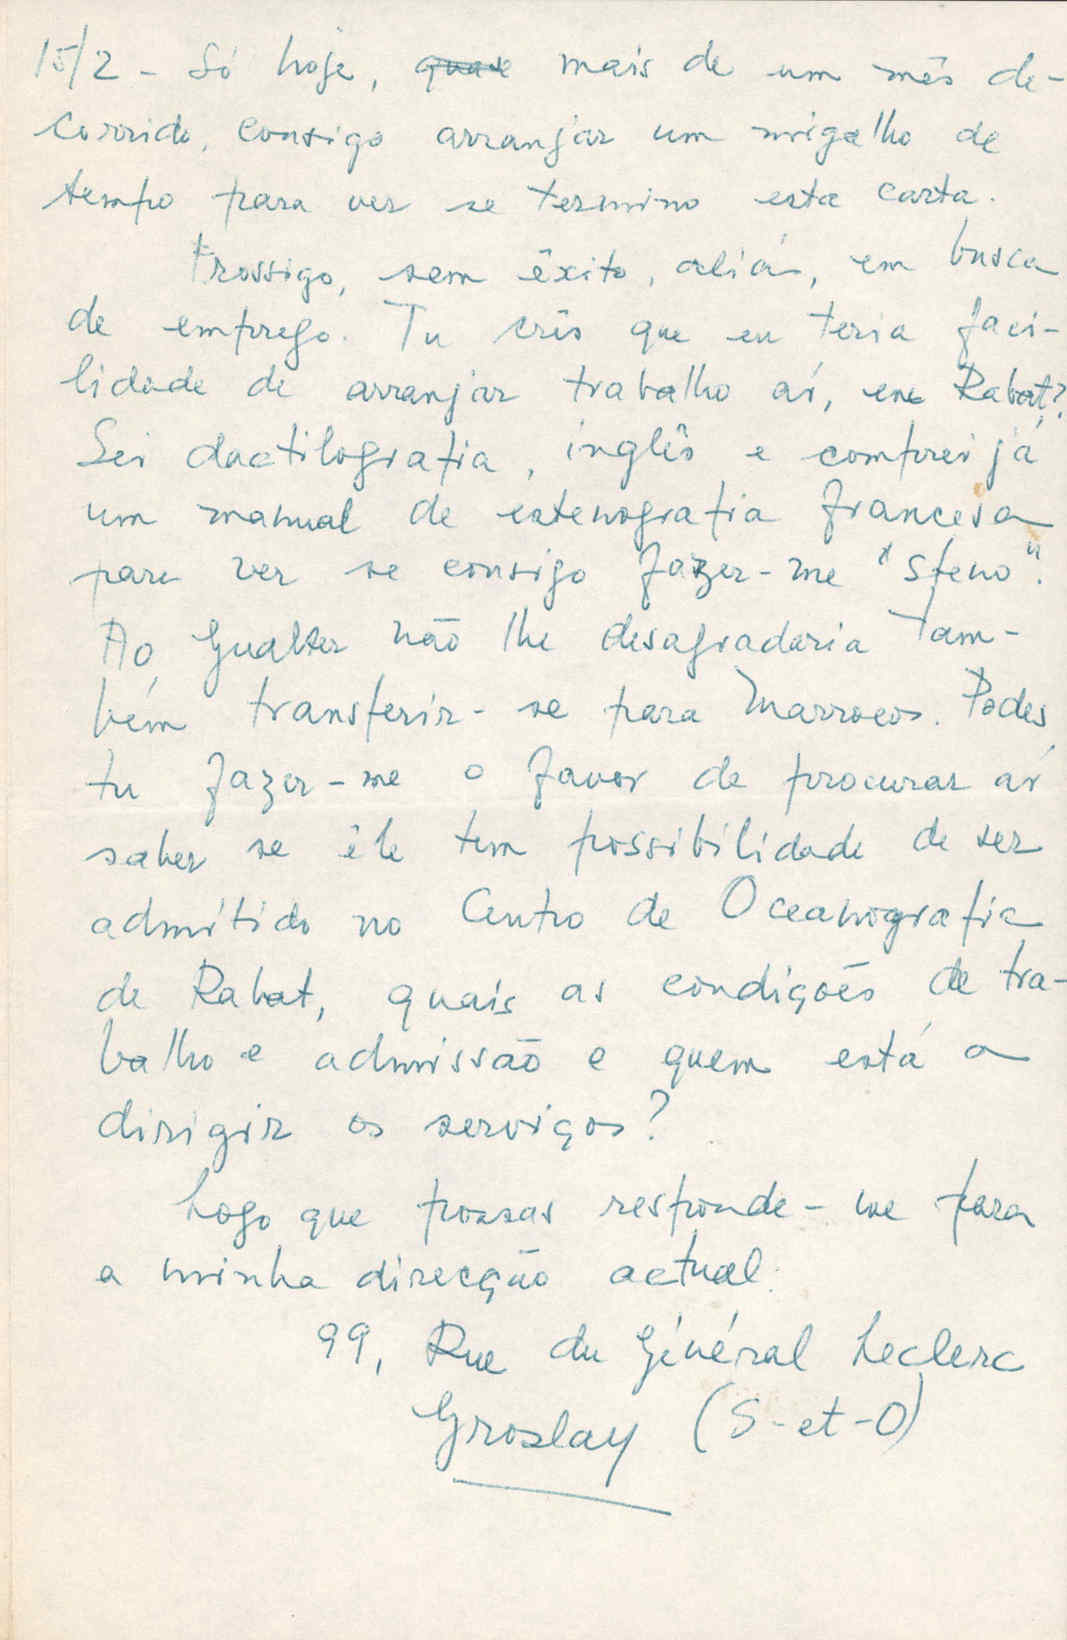 15/2 - Só hoje, quase mais de um mês de-
corrido, consigo arranjar um migalho de
tempo para ver se termino esta carta.
Prossigo, sem êxito, aliás, em busca
de emprego. Tu crês que eu teria faci-
lidade de arranjar trabalho aí, em Rabat?
Sei dactilografia, inglês e comprei já
um manual de estenografia francesa
para ver se consigo fazer-me "steno".
Ao Gualter não lhe desagradaria tam-
bém transferir-se para Marrocos. Podes
tu fazer-me o favor de procurar aí
saber se êle tem possibilidade de ser
admitido no Centro de Oceanografia
de Rabat, quais as condições de tra-
balho e admissão e quem está a
dirigir os serviços?
Logo que possas responde-me para
a minha direcção actual:
99, Rue du Général Leclerc
Groslay (S-et-O)